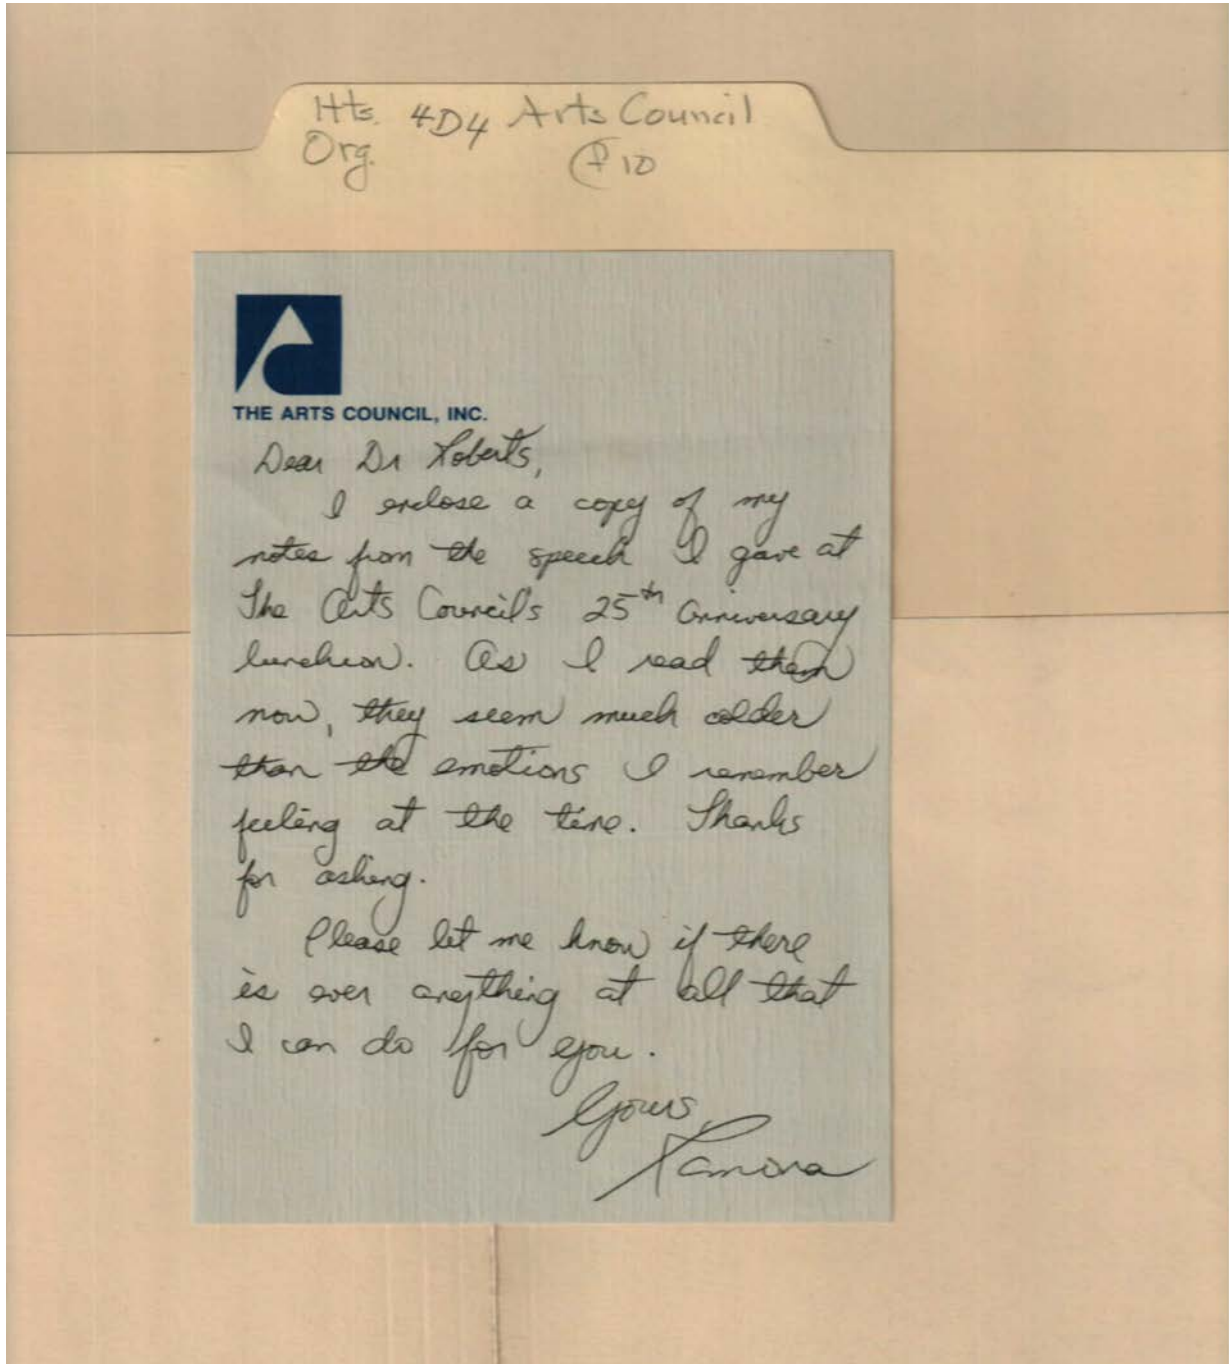 Hts. 4D4 Arts Council
Org. f 10
THE ARTS COUNCIL, INC.
Dear Dr Roberts,
I enclose a copy of my
notes from the speech I gave at
The Arts Council's 25th anniversary
luncheon. As I read them
now, they seem much colder
than the emotions I remember
feeling at the time. Thanks
for asking.
Please let me know if there
is ever anything at all that
I can do for you.
Yours,
Ramona